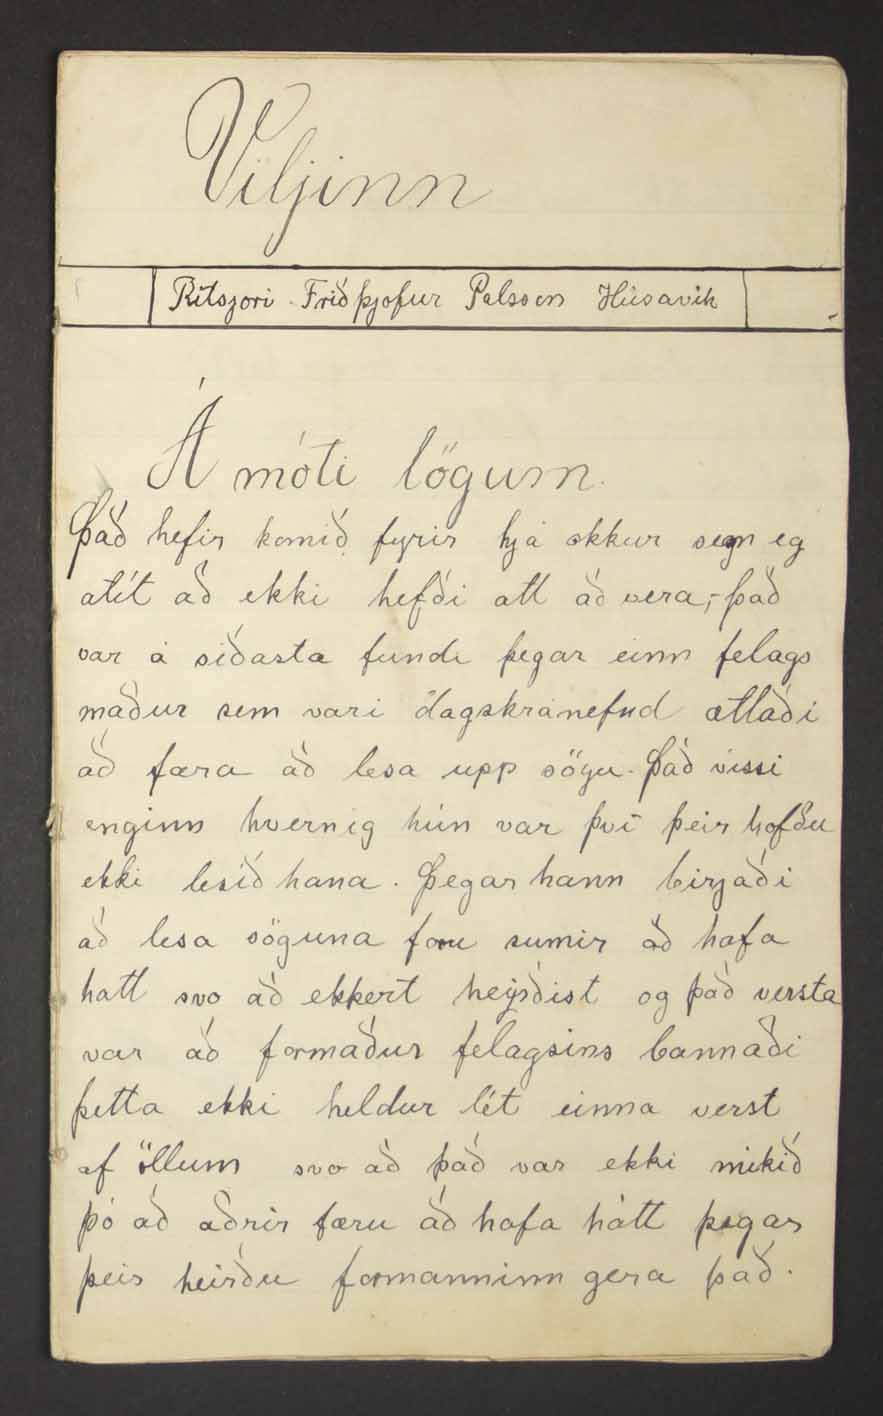 Viljinn
Ritsjori Friðþjofur Palsson Húsavik
Á móti lögum.
Það hefir komið fyrir hjá okkur sem eg
alít að ekki hefði att að vera, það
var á síðasta fundi þegar einn felags
maður sem var i dagskránefnd ætlaði
að fara að lesa upp sögu. Það vissi
enginn hvernig hún var því þeir hofðu
ekki lesið hana. Þegar hann birjaði
að lesa söguna foru sumir að hafa
hatt svo að ekkert heyrðist og það versta
var að formaður felagsins bannaði
þetta ekki heldur lét einna verst
af öllum svo að það var ekki mikið
þó að aðrir færu að hafa hátt þegar
þeir heirðu formanninn gera það.